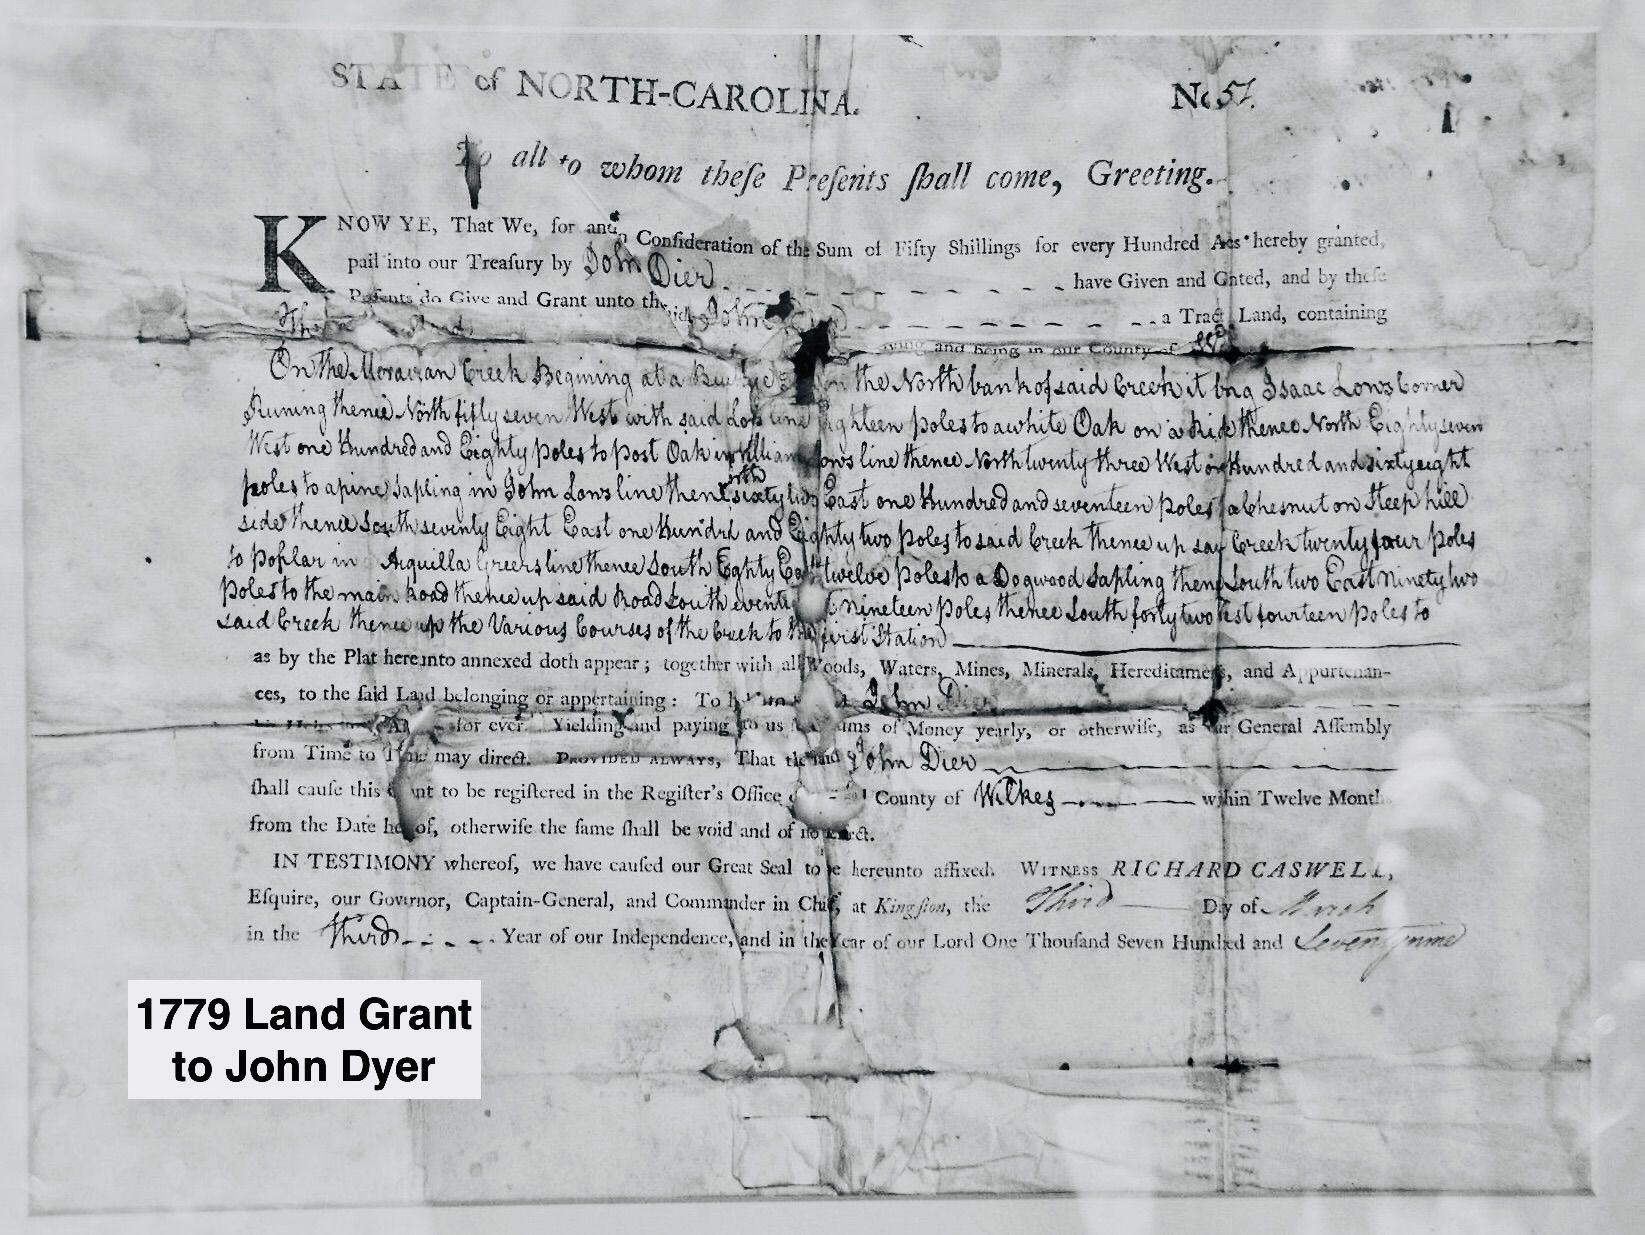 STATE of NORTH-CAROLINA.
No 57.
To all to whom theſe Preſents ſhall come, Greeting.
KNOW YE, That We, for and Conſideration of the Sum of Fifty Shillings for every Hundred Acs hereby granted,
pail into our Treaſury by John Dier have Given and Gnted, and by theſe
Preſents do Give and Grant unto the John a Tract Land, containing
lying and being in our County of
On the Moravian Creek Begining at a on the North bank of said Creek it bng Isaac Lows Corner
Runing thence North fifty seven West with said Lows line Eighteen poles to a white Oak on a Ridge thence North Eighty seven
West one Hundred and Eighty poles to post Oak in William Lows line thence North twenty three West on Hundred and sixty eight
poles to a pine Sapling in John Lows line then North sixty two East one Hundred and seventeen poles a Chesnut on Steep hill
side thence South seventy Eight East one Hundrd and Eighty two poles to said Creek thence up say Creek twenty four poles
to poplar in Aquilla Greers line thence South Eghty East twelve poles to a Dogwood Sapling then South two East Ninety two
poles to the main Road thence up said Road South nineteen poles thence South forty two fourteen poles to
said Creek thence up the Various Courses of the Creek to the first Station
as by the Plat hereunto annexed doth appear; together with all Woods, Waters, Mines, Minerals, Hereditaments, and Appurtenan-
ces, to the ſaid Land belonging or appertaining: To John Dier
for ever Yielding and paying to us ſums of Money yearly, or otherwiſe, as our General Aſſembly
from Time to Time may direct. PROVIDED ALWAYS, That the ſaid John Dier
ſhall cauſe this Grant to be regiſtered in the Regiſter's Office County of Wilkes within Twelve Months
from the Date hereof, otherwiſe the ſame ſhall be void and of no effect.
IN TESTIMONY whereof, we have cauſed our Great Seal to be hereunto affixed. WITNESS RICHARD CASWELL,
Eſquire, our Governor, Captain-General, and Commander in Chief, at Kingſton, the Third Day of March
in the Third Year of our Independence, and in the Year of our Lord One Thouſand Seven Hundred and Seventy nine
1779 Land Grant
to John Dyer